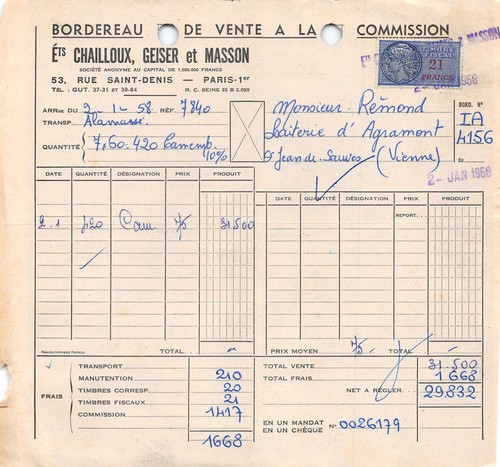 BORDEREAU DE VENTE A LA COMMISSION
Éts CHAILLOUX, GEISER et MASSON
SOCIÉTÉ ANONYME AU CAPITAL DE 1.500.000 FRANCS
53, RUE SAINT-DENIS — PARIS-1er
TÉL. : GUT. 37-31 ET 39-84 R. C. SEINE 55 B 2.095
TIMBRE FISCAL
21
FRANCS
& MASSON
2- JAN 1958
ARRée DU 2-1-58. RÉF 7840
TRANSP. Alamassé.
QUANTITÉ 7,60.420 Camemb.
40%
Monsieur. Rémond
Laiterie d'Agramont
St Jean de Sauves (Vienne)
BORD. N°
IA
4156
2- JAN 1958
DATE QUANTITÉ DÉSIGNATION PRIX PRODUIT
2.1 420 Cam 75 31.500
TOTAL.
DATE QUANTITÉ DÉSIGNATION PRIX PRODUIT
REPORT....
PRIX MOYEN 75.- TOTAL.
FRAIS
TRANSPORT
MANUTENTION 210
TIMBRES CORRESP. 20
TIMBRES FISCAUX 21
COMMISSION 1417
1668
TOTAL VENTE 31.500
TOTAL FRAIS 1668
NET A RÉGLER... 29.832
EN UN MANDAT
EN UN CHÈQUE N° 0026179